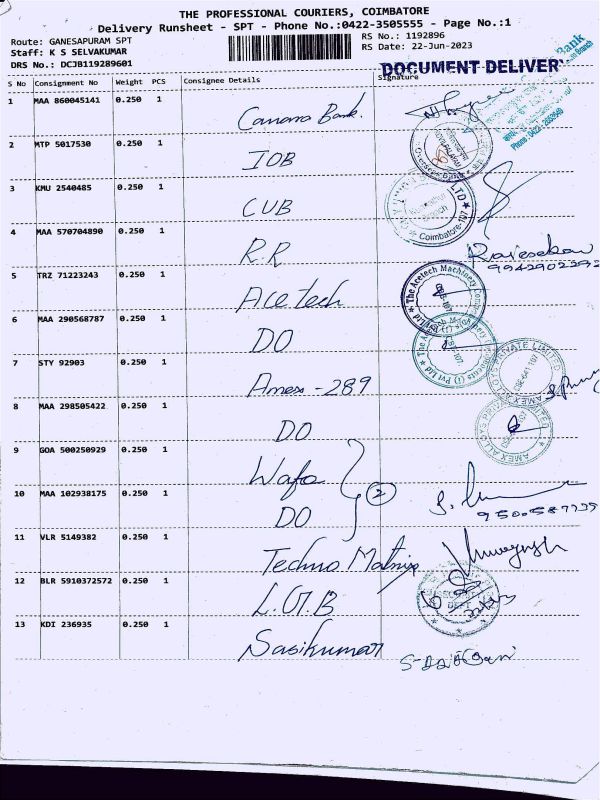 THE PROFESSIONAL COURIERS, COIMBATORE
Delivery Runsheet - SPT - Phone No.:0422-3505555 - Page No.:1
Route: GANESAPURAM SPT RS No.: 1192896
Staff: K S SELVAKUMAR RS Date: 22-Jun-2023
DRS No.: DCJB119289601
DOCUMENT DELIVERY
S No Consignment No Weight PCS Consignee Details Signature
1 MAA 860045141 0.250 1 Canara Bank.
2 MTP 5017530 0.250 1 IOB
3 KMU 2540485 0.250 1 CUB
Coimbatore-107
4 MAA 570704890 0.250 1 R.R
Rajesekar
5 TRZ 71223243 0.250 1 Acetech
The Acetech Machinery
6 MAA 290568787 0.250 1 DO
7 STY 92903 0.250 1 Amex - 289
AMEX ALLOYS PRIVATE LIMITED
8 MAA 298505422 0.250 1 DO
AMEX ALLOYS
9 GOA 500250929 0.250 1 Wafa
10 MAA 102938175 0.250 1 DO
2
11 VLR 5149382 0.250 1 Techno
12 BLR 5910372572 0.250 1
13 KDI 236935 0.250 1 Sasikumar